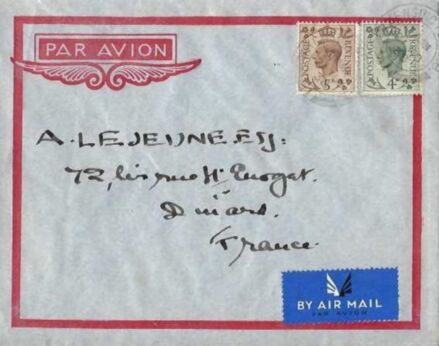 PAR AVION
POSTAGE REVENUE
5D
POSTAGE REVENUE
4D
A. LEJEUNE. ESQ:
72, bis rue
Dinard.
France.
BY AIR MAIL
PAR AVION